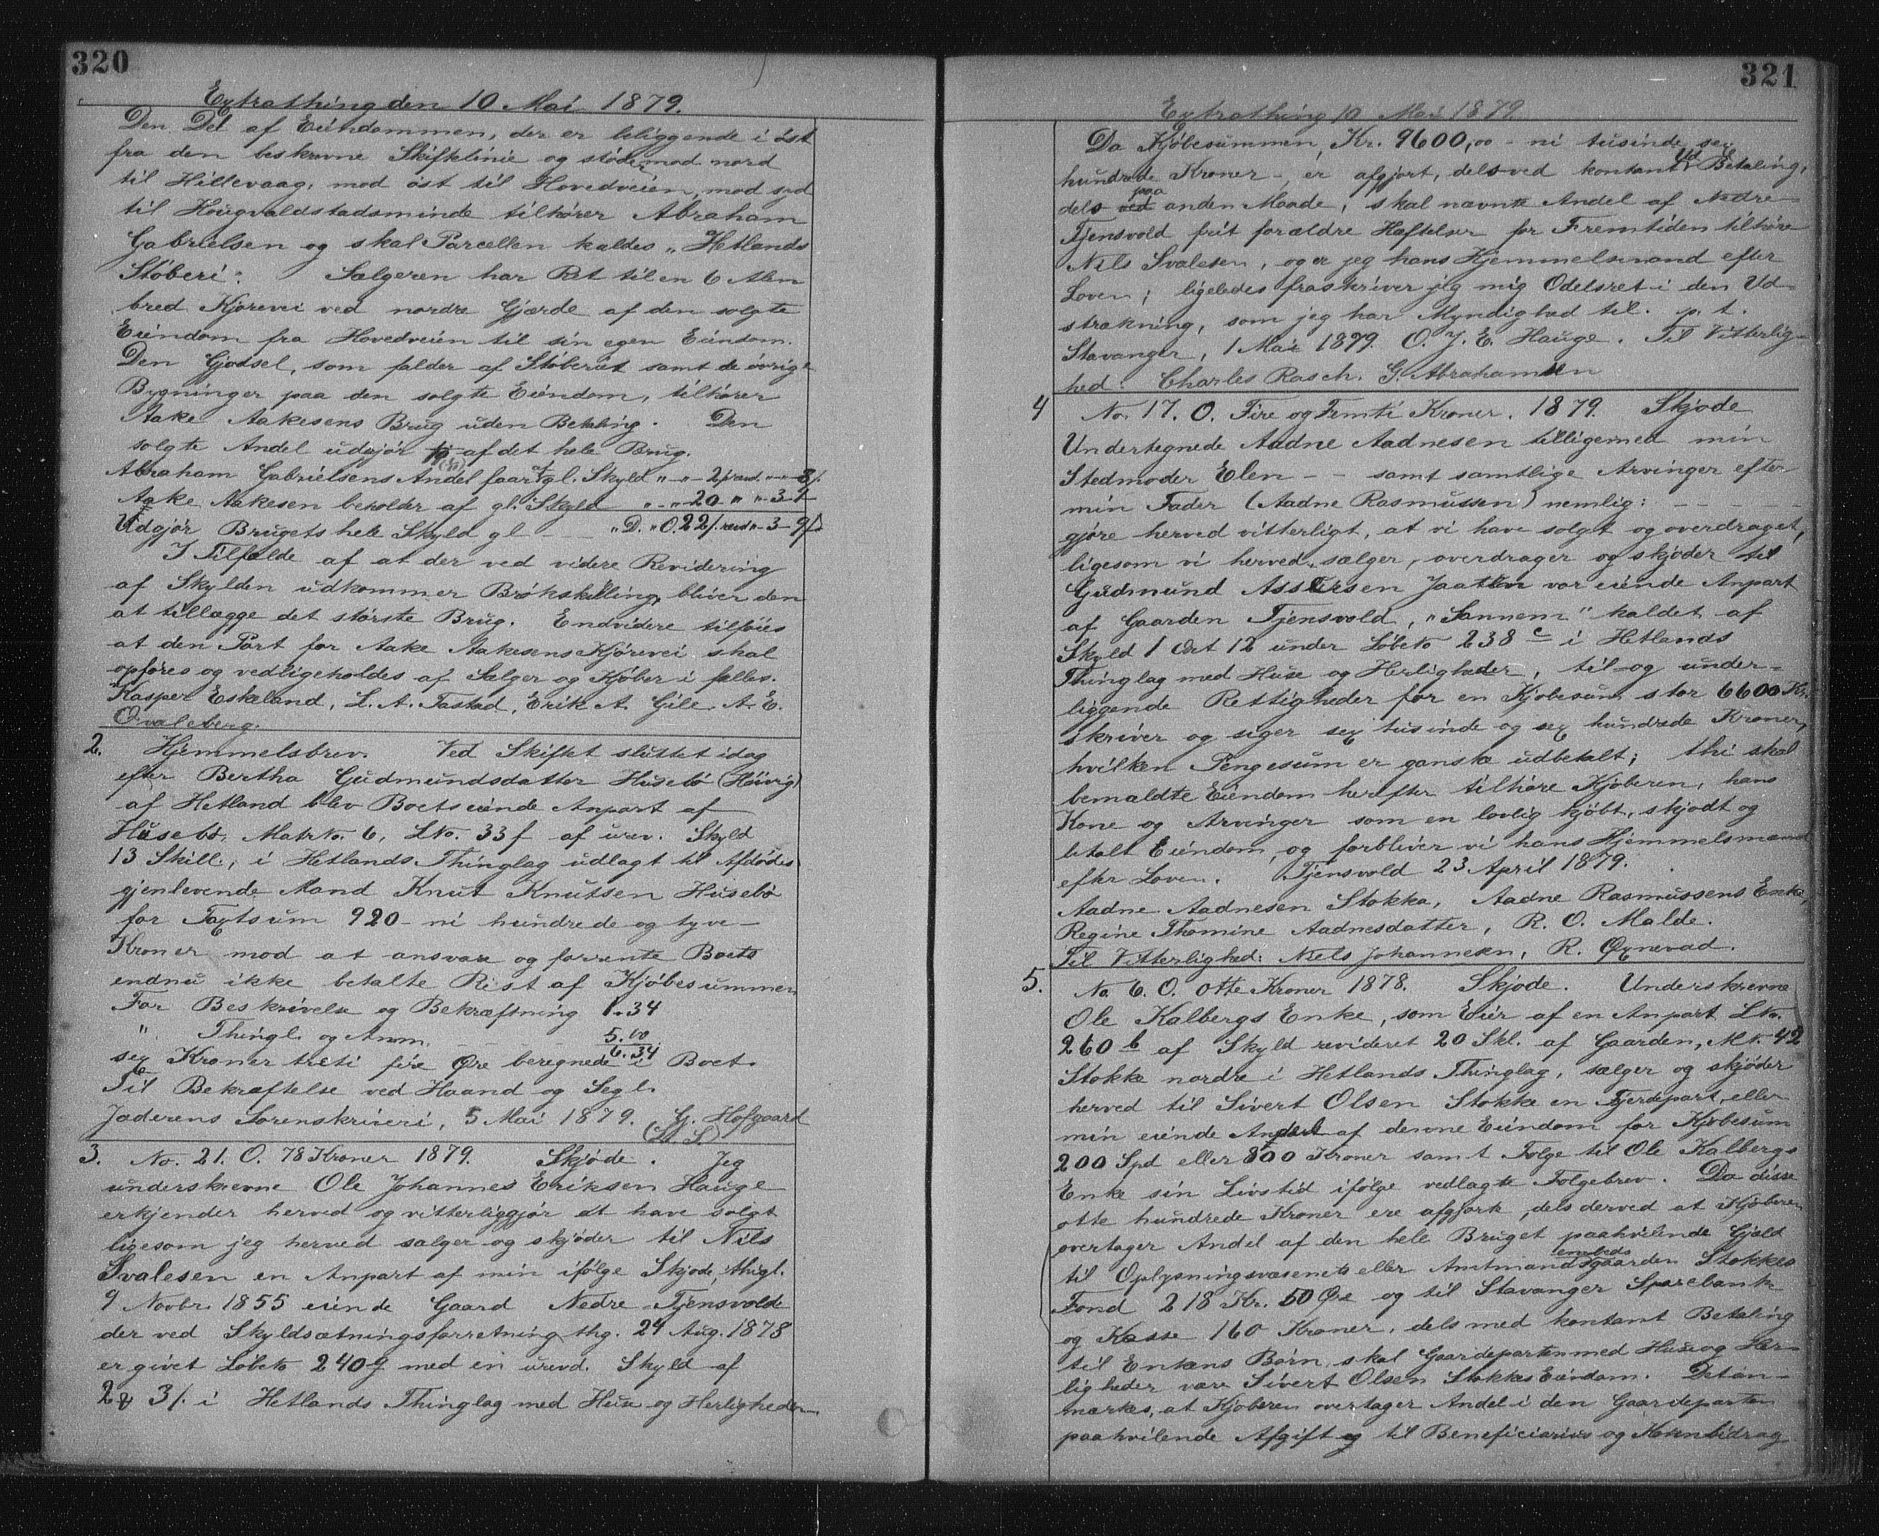 320
Extrathing den 10 Mai 1879.
Den Del af Eiendommen, der er beliggende i öst
fra den beskrevne Skiftelinie og stöder mod nord
til Hillevaag, mod öst til Hovedveien, mod syd
til Hougvaldstadsminde tilhører Abraham
Gabrielsen og skal Parcellen kaldes „Hetlands
Stöberi". Sælgeren har Ret til en 6 Alen
bred Kjørevei ved nordre Gjærde af den solgte
Eiendom fra Hovedveien til sin egen Eiendom.
Den Gjødsel, som falder af Stöberiet samt de övrige
Bygninger paa den solgte Eiendom, tilhører
Aake Aakesens Brug uden Betaling. Den
solgte Andel udgjør af det hele Brug.
Abraham Gabrielsens Andel faar af gl. Skyld
Aake Aakesen beholder af gl. Skyld „ - „ 20 „ „ - 3 - 1
Udgjør Brugets hele Skyld gl
I Tilfælde af at der ved videre Revidering
af Skylden udkommer Brökskilling, bliver den
at tillægge det störste Brug. Endvidere tilföies
at den Port for Aake Aakesens Kjørevei skal
opføres og vedligeholdes af Sælger og Kjøber i fælles.
Kasper Eskeland, L. A. Tastad, Erik A. Gile, A. E.
Qvaleberg.
2. Hjemmelsbrev. Ved Skiftet sluttet idag
efter Bertha Gudmundsdatter Husebö (Höivig)
af Hetland blev Boets eiende Anpart af
Husebö, Matr No. 6, LNo. 33 f af urev. Skyld
13 Skill, i Hetlands Thinglag udlagt til Afdödes
gjenlevende Mand Knut Knutsen Husebö
for Taxtsum 920 - ni hundrede og tyve -
Kroner mod at ansvare og forrente Boets
endnu ikke betalte Rest af Kjöbesummen
For Beskrivelse og Bekræftning 1.34
" Thingl. og Anm. 5.00
6.34
sex Kroner treti fire Öre beregnede i Boet.
Til Bekræftelse ved Haand og Segl.
Jæderens Sorenskriveri, 5 Mai 1879. G. Hofgaard
(L. S.)
3. No. 21. O. 78 Kroner 1879. Skjøde. Jeg
underskrevne Ole Johannes Eriksen Hauge
erkjender herved og vitterliggjør at have solgt
ligesom jeg herved sælger og skjøder til Nils
Svalesen en Anpart af min ifölge Skjøde, thigl.
9 Novbr. 1855 eiende Gaard Nedre Tjensvolde
der ved Skyldsætningsforretning thg. 24 Aug. 1878
er givet Löbeto 240 g med en urevd. Skyld af
i Hetlands Thinglag med Huse og Herligheder.
321
Extrathing 10 Mai 1879.
Da Kjöbesummen, Kr. 9600,00 - ni tusinde sex
hundrede Kroner -, er afgjort, dels ved kontant Ud Betaling,
dels ved paa anden Maade, skal nævnte Andel af Nedre
Tjensvold frit for ældre Hæftelser for Fremtiden tilhöre
Nils Svalesen, og er jeg hans Hjemmelsmand efter
Loven; ligeledes fraskriver jeg mig Odelsret i den Ud-
strækning, som jeg har Myndighed til. p. t.
Stavanger, 1 Mai 1879. O. J. E. Hauge. Til Vitterlig-
hed: Charles Rasch. G. Abrahamsen
4 No. 17. O. Fire og Femti Kroner. 1879. Skjøde
Undertegnede Aadne Aadnesen tilligemed min
Stedmoder Elen - samt samtlige Arvinger efter
min Fader (Aadne Rasmussen) nemlig: - - - -
gjøre herved vitterligt, at vi have solgt og overdraget,
ligesom vi herved sælger, overdrager og skjøder til
Gudmund Assersen Jaatten vor eiende Anpart
af Gaarden Tjensvold, „Sannem" kaldet af
Skyld 1 Ort 12 under Löbeto 238 c i Hetlands
Thinglag med Huse og Herligheder, til- og under-
liggende Rettigheder for en Kjøbesum stor 6600 Kr.
skriver og siger sex tusinde og sex hundrede Kroner,
hvilken Pengesum er ganske udbetalt; thi skal
bemældte Eiendom herefter tilhöre Kjøberen, hans
Kone og Arvinger som en lovlig kjøbt, skjødt og
betalt Eiendom, og forbliver vi hans Hjemmelsmænd
efter Loven. Tjensvold 23 April 1879.
Aadne Aadnesen Stokka, Aadne Rasmussens Enke,
Regine Thomine Aadnesdatter, R. O. Malde.
Til Vitterlighed: Niels Johannesen, R. Oynevad.
5. No 6. O. Otte Kroner 1878. Skjøde. Underskrevne
Ole Kalbergs Enke, som Eier af en Anpart LNo.
260 b af Skyld revideret 20 Skl. af Gaarden, Mt. 42
Stokke nordre i Hetlands Thinglag, sælger og skjøder
herved til Sivert Olsen Stokke en Fjerdepart, eller
min eiende Anpart af denne Eiendom for Kjøbesum
200 Spd eller 800 Kroner samt Folge til Ole Kalbergs
Enke sin Livstid ifølge vedlagte Folgebrev. Da disse
otte hundrede Kroner ere afgjorte, dels derved at Kjøberen
overtager Andel af den hele Bruget paahvilende Gjæld
til Oplysningsvæsenets eller Amtmandsgaarden embeds Stokkes
Fond 218 Kr. 50 Öre og til Stavanger Sparebank
og Kasse 160 Kroner, dels med kontant Betaling
til Enkens Børn, skal Gaardeparten med Huse og Her-
ligheder være Sivert Olsen Stokkes Eiendom. Det an-
mærkes, at Kjøberen overtager Andel i den Gaardeparten
paahvilende Afgift og til Beneficiarius og Kornbidrag